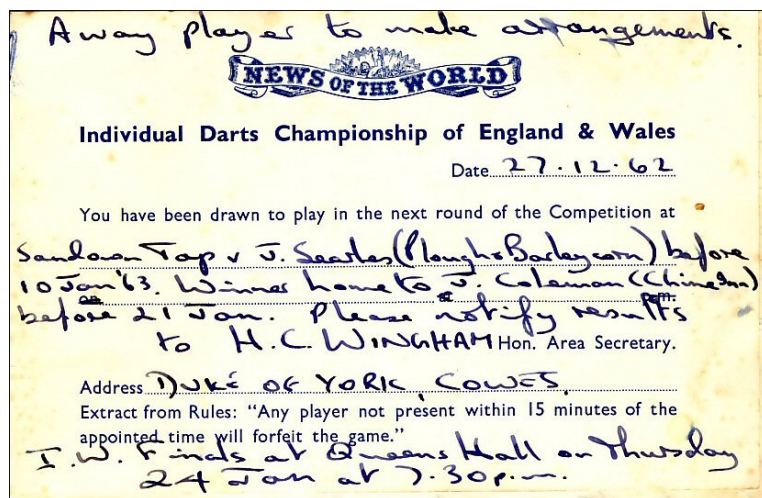 Away player to make arrangements.
NEWS OF THE WORLD
Individual Darts Championship of England & Wales
Date 27.12.62
You have been drawn to play in the next round of the Competition at
Sandown Tap v J. Searles (Plough & Barleycorn) before
10 Jan '63. Winner home to J. Coleman (Chine Inn)
on at p.m.
before 21 Jan. Please notify results
to H.C. WINGHAM Hon. Area Secretary.
Address DUKE OF YORK, COWES.
Extract from Rules: "Any player not present within 15 minutes of the
appointed time will forfeit the game."
I.W. Finals at Queens Hall on Thursday
24 Jan at 7.30p.m.